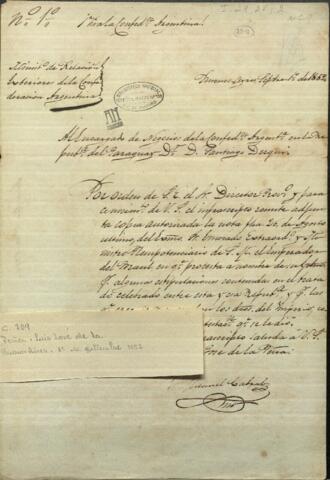 Nº 1º
Viva la Confedⁿ Argentina!
Minist.º de Relaciones
Exteriores de la Confe
deracion Argentina
Buenos Ayres, Septre 1º de 1852
Al Encargado de Negocios de la Confedⁿ Argentª en la Re-
públª del Paraguay Dr. D. Santiago Derqui
Por orden de S. E. el Sr. Director Provº y para
conocimtº de V. S. el infrascripto remite adjun-
ta copia autorizada la nota fha 20 de Agosto
ultimo, del Exmo. Sr. Enviado Extraordº y Mi
nistro Plenipotenciario de S. M. el Emperador
del Brasil en qe protesta a nombre de su Gobierno
alguna estipulaciones contenidas en el trata
do celebrado entre esta y esa Repubª y qe las
los dros. del Imperio,
saluda a V. S.
José de la Peña
Manuel Cabral
C. 209
Peña, Luis José de la
Buenos Aires, 1º de septiembre 1852